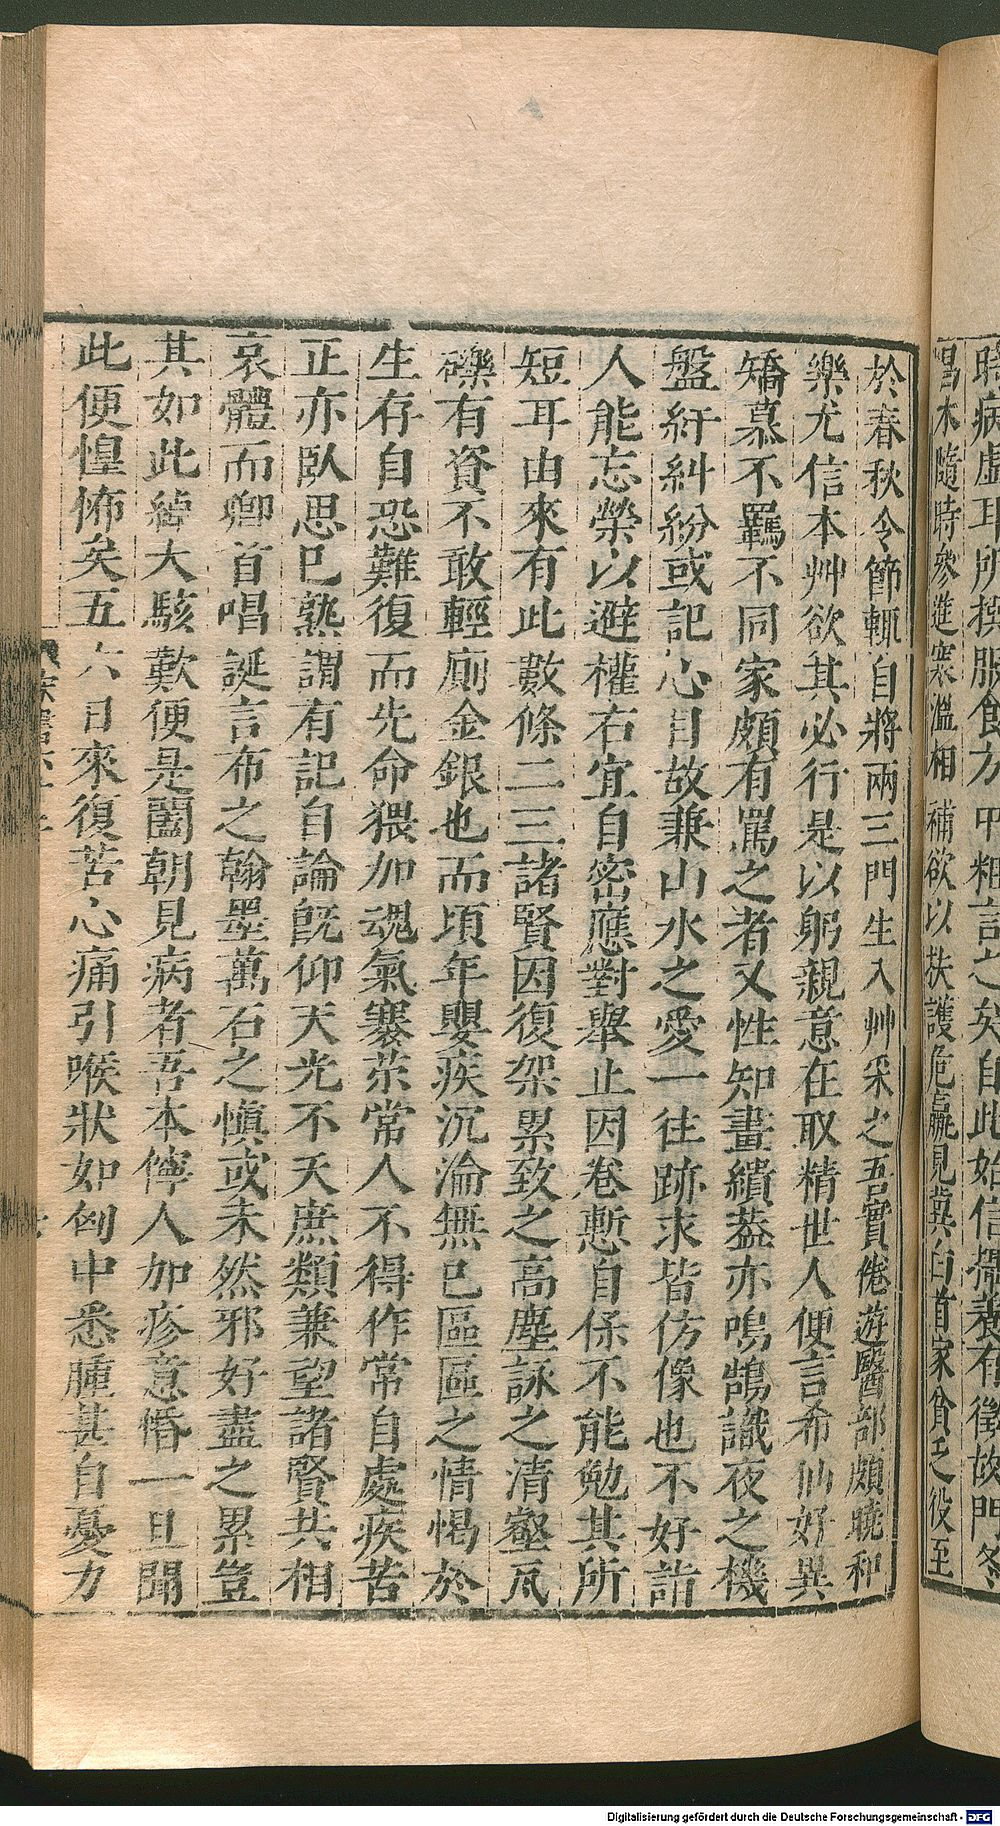 聆病虛耳所撰服食方中粗言之矣自此始信攝養有徵故門冬
昌朮隨時參進寒溫相補欲以扶護危羸見冀白首家貧乏役至
於春秋令節輒自將兩三門生入艸采之吾實倦遊醫部頗曉和
藥尤信本艸欲其必行是以躬親意在取精世人便言希仙好異
矯慕不羈不同家頗有罵之者又性知畫繢葢亦鳴鵠識夜之機
盤紆糾紛或記心目故兼山水之愛一往跡求皆仿像也不好詣
人能忘榮以避權右宜自密應對舉止因卷慙自保不能勉其所
短耳由來有此數條二三諸賢因復架累致之高塵詠之清壑瓦
礫有資不敢輕廁金銀也而頃年嬰疾沉淪無已區區之情愒於
生存自恐難復而先命猥加魂氣褰茶常人不得作常自處疾苦
正亦臥思已熟謂有記自論旣仰天光不夭庶類兼望諸賢共相
哀體而卿首唱誕言布之翰墨萬石之慎或未然邪好盡之累豈
其如此綽大駭歎便是闔朝見病者吾本儜人加疹意惛一旦聞
此便惶怖矣五六日來復苦心痛引喉狀如匈中悉腫甚自憂力
Digitalisierung gefördert durch die Deutsche Forschungsgemeinschaft - DFG